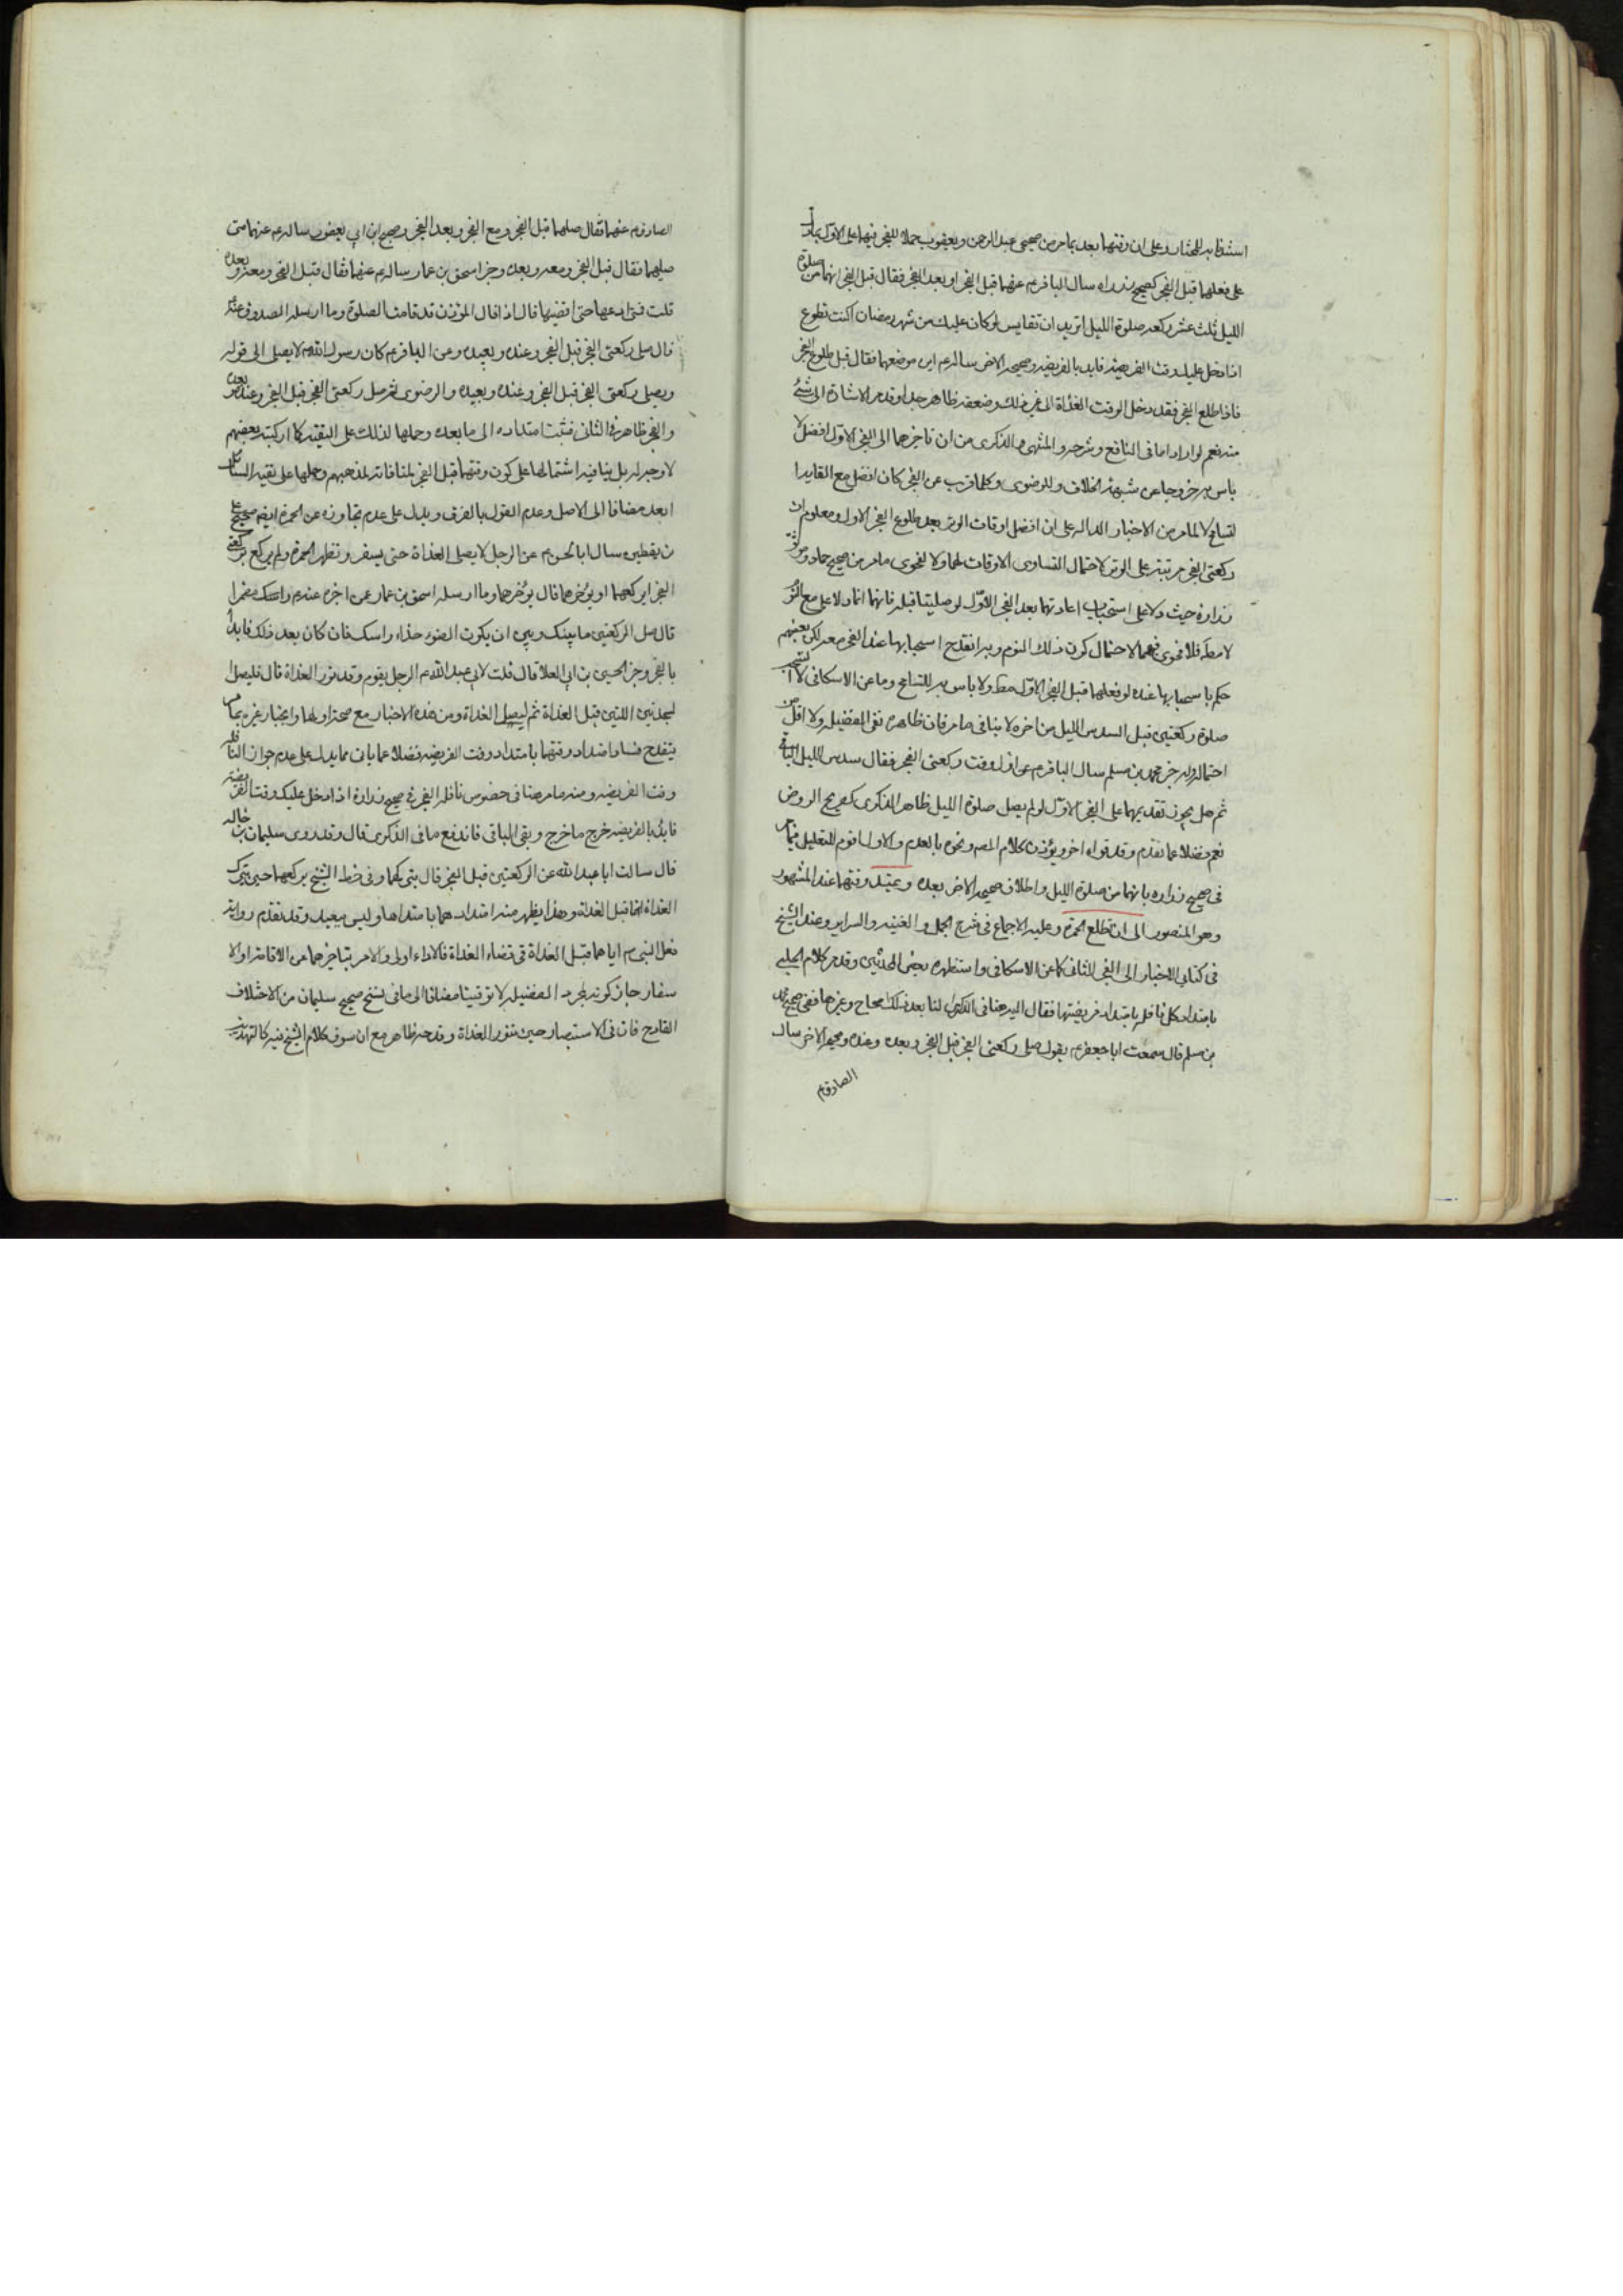 استشظابه للمختار وعلى ان وقتها بعد بما مر من صحيحى عبد الرحمن ويعقوب حملا للفجر فيها على الاول
على فعلهما قبل الفجر كصحيح زراره سال الباقرم عنهما قبل الفجر او بعد الفجر فقال قبل الفجر انهما من صلوة
الليل ثلث عشر ركعه صلوة الليل اتريد ان تقايس لو كان عليك من شهر رمضان اكنت تطوع
اذا دخل عليك وقت الفريضه فابد بالفريضه وصحيحه الاخر ساله م اين موضعهما فقال قبل طلوع الفجر
فاذا طلع الفجر فقد دخل الوقت الغداة الى غير ذلك وضعفه ظاهر جدا وقد مر الاشارة الى شئ
منه نعم لو ارادا ما فى النافع وشرحه و المنتهى والذكرى من ان تاخيرهما الى الفجر الاول افضل لا
باس به خروجا عن شبهة الخلاف وللرضوى وكلما قرب من الفجر كان افضل مع القايد
لتسامح لا لما مر من الاخبار الداله على ان افضل اوقات الوتر بعد طلوع الفجر الاول ومعلوم ان
ركعتى الفجر مرتبته على الوتر لاحتمال التساوى الاوقات لهما ولا لفحوى ما مر من صحيح حماد وموثق
زرارة حيث دلا على استحباب اعادتهما بعد الفجر الاول لو صليتا قبله فانهما انما دلا على مع النوم
لا مطه فلا فحوى فيهما لاحتمال كون ذلك النوم وبه انقدح استحبابها عند الفجر معه لكن بعضهم
حكم باستحبابها عنده لو فعلهما قبل الفجر الاول مطه ولا باس به للتسامح وما عن الاسكافى لا استحب
صلوة ركعتين قبل السدس الليل من اخره لا ينافى ما مر فان ظاهره نفى الفضيله ولا اقل من
احتماله وله خبر محمد بن مسلم سال الباقرم عن اول وقت ركعتى الفجر فقال سدس الليل الباقى
ثم هل يجوز تقديمهما على الفجر الاول لو لم يصل صلوة الليل ظاهر الذكرى كصريح الروض
نعم وفضلا عما تقدم وقد قواه اخر ويؤذن كلام المصه ونحوه بالعدم والاول اقوم للتعليل
فى صحيح زراره بانهما من صلوة الليل واطلاق صحيحه الاخر بعده ويمتد وقتهما عند المشهور
وهو المنصور الى ان تطلع الحمرة وعليه الاجماع فى شرح الجمل والغنيه والسراير وعند الشيخ
فى كتابى الاخبار الى الفجر الثانى كما عن الاسكافى واستظهره بعض المحدثين وقد مر كلام الحلبى
بامتداد كل نافله بامتداد فريضتها فقال اليه هنا فى الذكرى لنا بعد ذلك صحاح وغيرها ففى صحيح محمد
بن مسلم قال سمعت ابا جعفرم يقول صلى ركعتى الفجر قبل الفجر وبعده وعنده وصحيحه الاخر سال
الصادقم
الصادقم عنهما فقال صلهما قبل الفجر ومع الفجر وبعد الفجر وصحيح ابن ابى يعفور ساله م عنهما متى
صليهما فقال قبل الفجر ومعه وبعده وخبر اسحق بن عمار ساله م عنهما فقال قبل الفجر ومعه وبعده
قلت فمتى ادعها حتى اقضيها قال اذا قال المؤذن قد قامت الصلوة وما ارسله الصدوق عنه
قال صل ركعتى الفجر قبل الفجر وعنده وبعيده وعن الباقرم كان رسول الله لا يصلى الى قوله
ويصلى ركعتى الفجر قبل الفجر وعنده وبعيده والرضوى ثم صل ركعتى الفجر قبل الفجر وعنده وبعده
والفجر ظاهر فى الثانى فثبت امتداده الى ما بعده وحملها لذلك على التقيه كما ارتكبه بعضهم
لا وجه له بل ينافيه اشتمالها على كون وقتهما قبل الفجر لمنافاته لمذهبهم وحملها على تقيه السائل
ابعد مضافا الى الاصل وعدم القول بالفرق ويدل على عدم تجاوزه عن الحمرة ايضا صحيح على
بن يقطين سال ابا الحسن م عن الرجل لا يصلى الغداة حتى يسفر وتظهر الحمرة ولم يركع ركعتى
الفجر ايركعهما او يؤخرهما قال يؤخرهما وما ارسله اسحق بن عمار عمن اخبره عنه م
قال صل الركعتين ما بينك وبين ان يكون الضوء حذاء راسك فان كان بعد ذلك فابدأ
بالفجر وخبر الحسين بن ابى العلا قال قلت لابى عبد الله م الرجل يقوم وقد نور الغداة قال فليصل
السجدتين اللتين قبل الغداة ثم ليصل الغداة ومن هذه الاخبار مع صحتها وانجبار غيره بما مر
ينقدح فساد امتداد وقتهما بامتداد وقت الفريضه فضلا عما بان مما يدل على عدم جواز النافله
وقت الفريضه ومنه ما مر هنا فى خصوص نافله الفجر فى صحيح زرارة اذا دخل عليك وقت الفريضه
فابدأ بالفريضه خرج ما خرج وبقى الباقى فاندفع ما فى الذكرى قال وقد روى سليمان بن خالد
قال سالت ابا عبد الله عن الركعتين قبل الفجر قال وفى خط الشيخ يركعهما حين يترك
الغداة انهما قبل الغداة وهذا يظهر منه امتدادهما بامتدادها وليس ببعيد وقد تقدم رواية
فعل النبى م اياهما قبل الغداة فى قضاء الغداة فالاداء اولى والامر بتاخيرهما عن الاقامة او الا
سفار جاز كونه لمجرد الفضيله لا توقيتا مضافا الى ما فى نسخ صحيح سليمان من الاختلاف
القادح فان فى الاستبصار حين تنور الغداة وقدحه ظاهر مع ان سوف كلام الشيخ فيه كالتهذيب